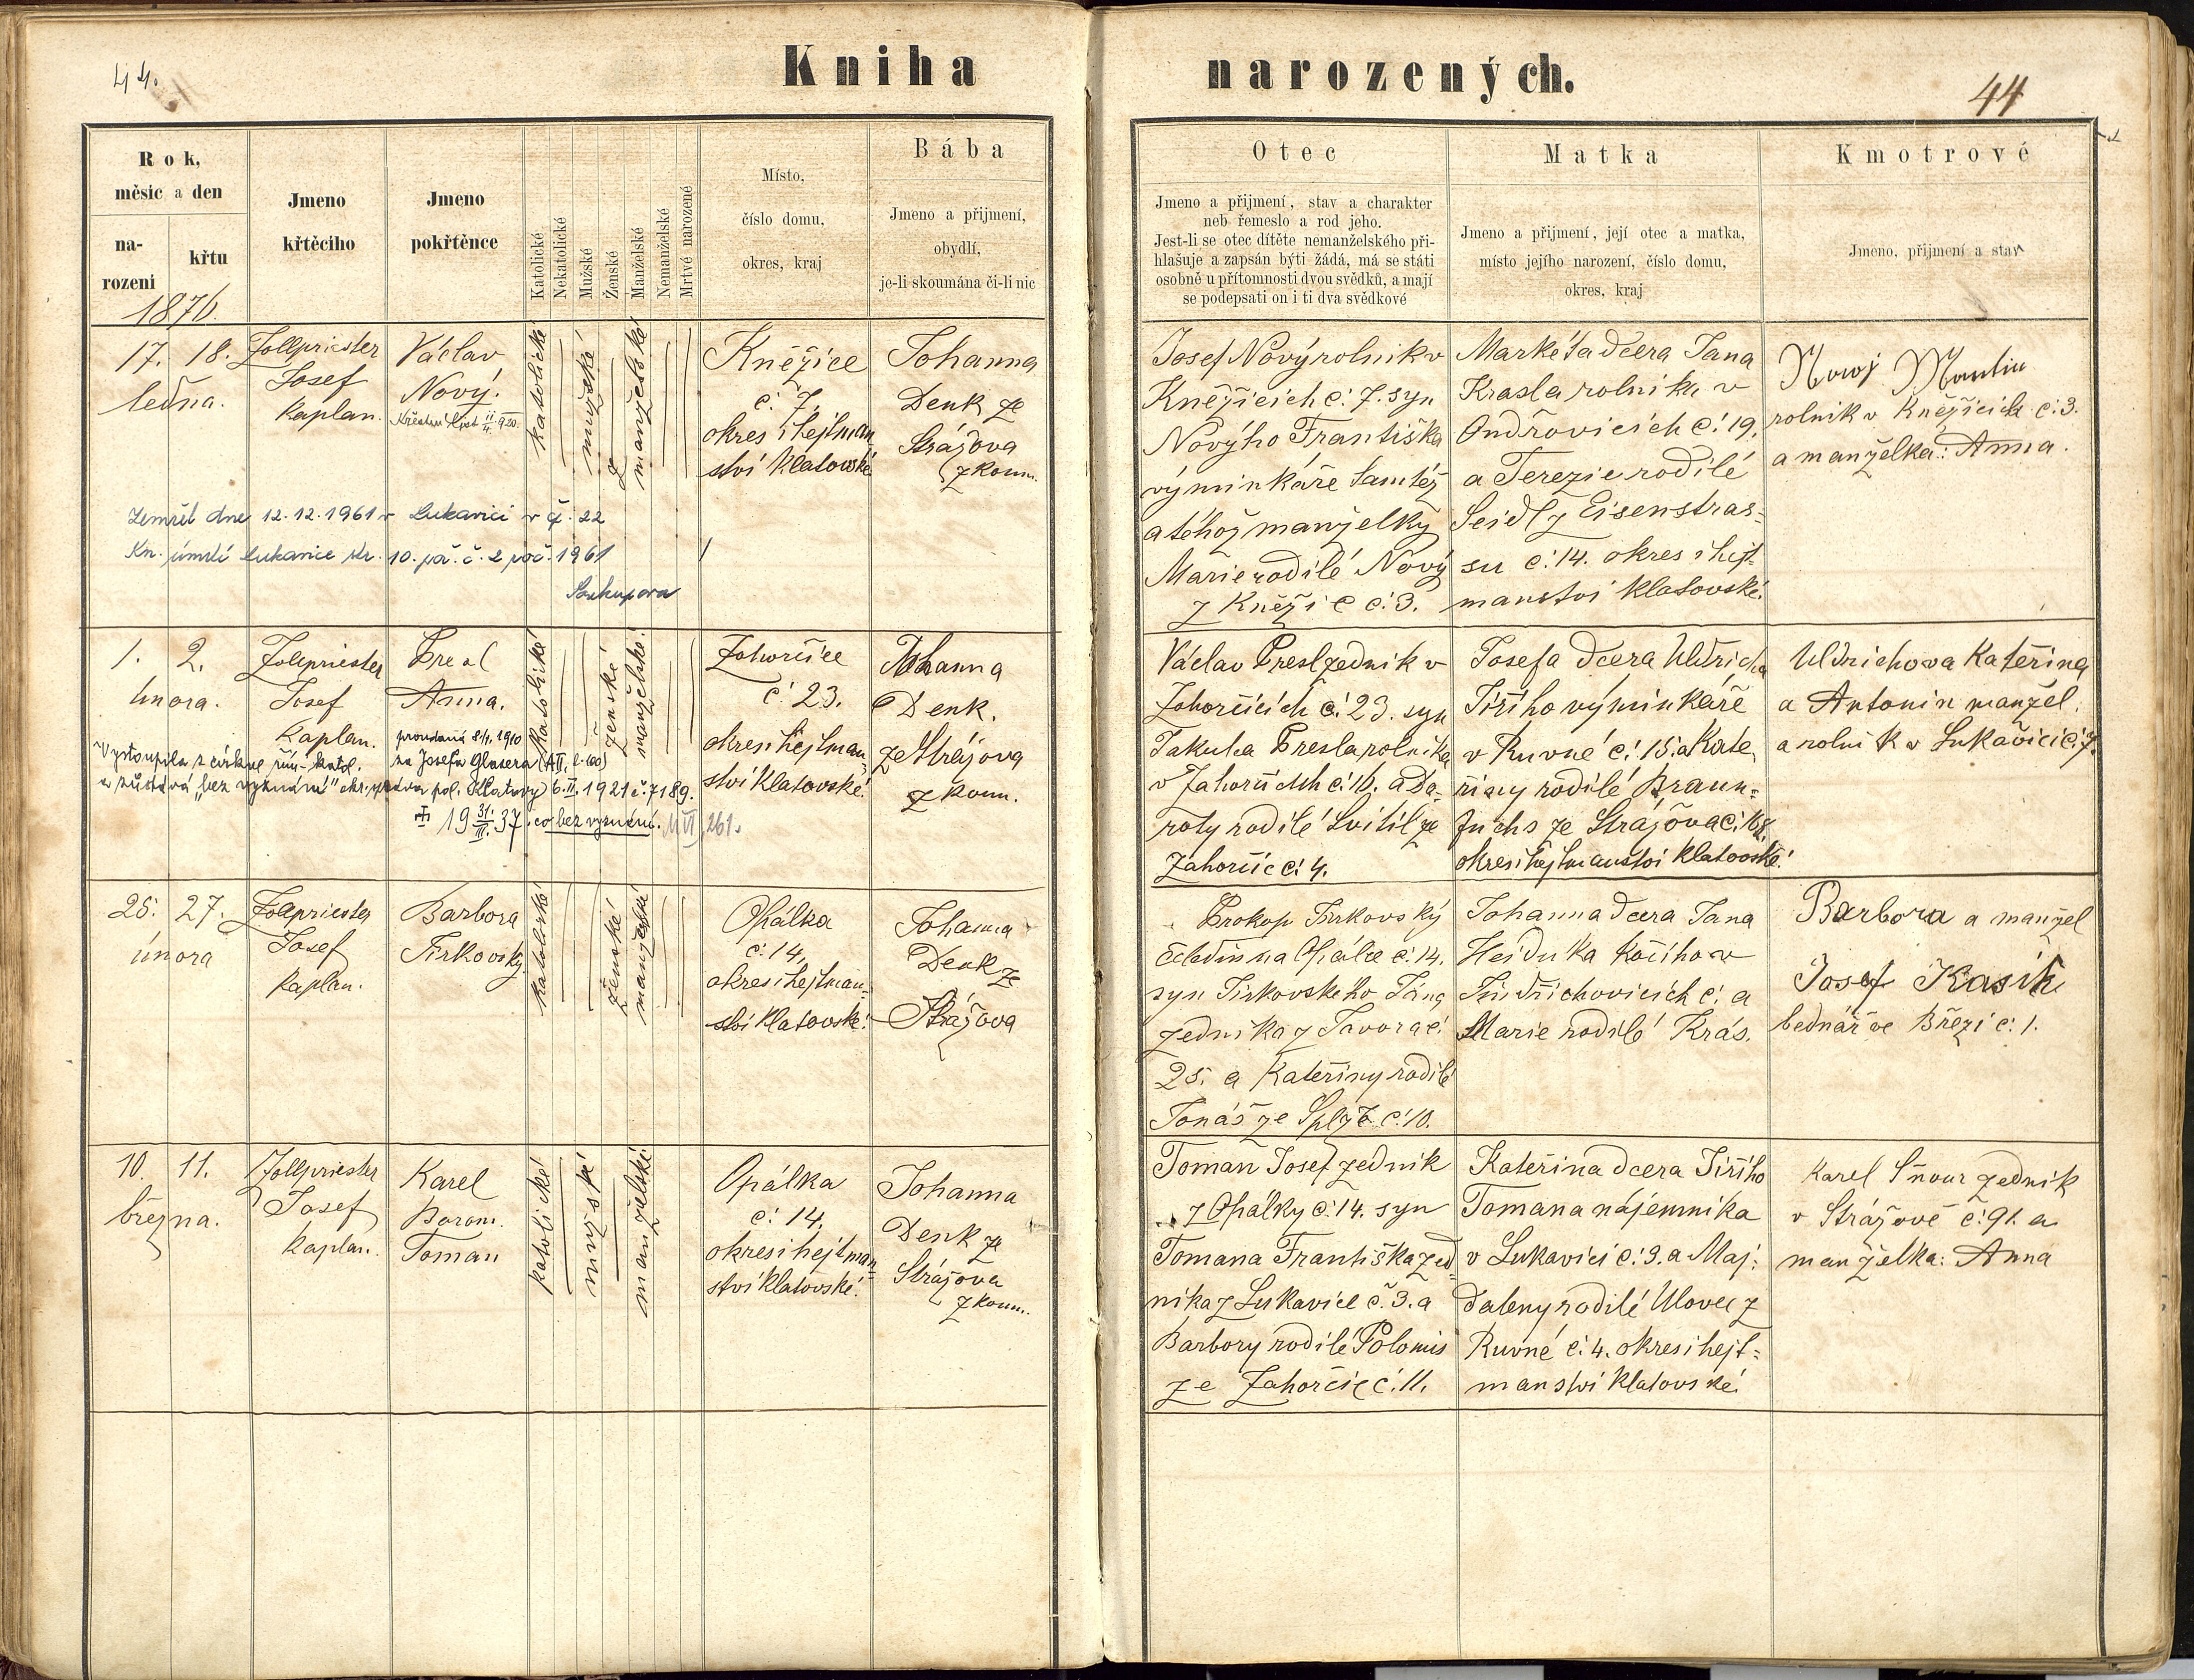 44.
Kniha
narozených.
44
Rok,
měsíc a den
na-
rozeni
křtu
Jmeno
křtěcího
Jmeno
pokřtěnce
Katolické
Nekatolické
Mužské
Ženské
Manželské
Nemanželské
Mrtvé narozené
Místo,
číslo domu,
okres, kraj
Bába
Jmeno a přijmení,
obydlí,
je-li skoumána či-li nic
Otec
Jmeno a přijmení, stav a charakter
neb řemeslo a rod jeho.
Jest-li se otec dítěte nemanželského při-
hlašuje a zapsán býti žádá, má se státi
osobně u přítomnosti dvou svědků, a mají
se podepsati on i ti dva svědkové
Matka
Jmeno a přijmení, její otec a matka,
místo jejího narození, číslo domu,
okres, kraj
Kmotrové
Jmeno, přijmení a stav
1876.
17. 18.
ledna.
Zollpriester
Josef
Kaplan.
Václav
Nový.
Křestní list
katolické
mužské
manželské
Kněžice
č. 7,
okres i hejtman-
ství Klatovské
Johanna
Denk ze
Strážova
zkoum.
Josef Nový rolník v
Kněžicích č. 7. syn
Novýho Františka
výminkáře tamtéž
a téhož manželky
Marie rodilé Nový
z Kněžic č. 3.
Markéta dcera Jana
Krasla rolníka v
Ondřovicích č. 19.
a Terezie rodilé
Seidl z Eisenstras=
su č. 14. okres i hejt=
manství Klatovské.
Nowy Martin
rolník v Kněžicích č. 3.
a manželka: Anna.
Zemřel dne 12.12.1961 v Lukavici v č. 22
Kn. úmrtí Lukavice str. 10. poř. č. 2 roč. 1961
1. 2.
února.
Zollpriester
Josef
Kaplan.
Presl
Anna.
provdaná 8/11. 1910
za Josefa Glasera
Vystoupila z církve řím-katol.
a zůstává „bez vyznání" okr. správa pol. Klatovy 6.II.1921 č. 7189.
19 31./III. 37. co bez vyznání. 261.
katolické
ženské
manželské.
Zahorčice
č. 23.
okres i hejtman-
ství Klatovské.
Johanna
Denk.
ze Strážova
zkoum.
Václav Presl zedník v
Zahorčicích č. 23. syn
Jakuba Presla rolníka
v Zahorčicích č. 16. a Do-
roty rodilé Svitil ze
Zahorčic č. 4.
Josefa dcera Uldricha
Jiřího výminkáře
v Kuvné č. 15. a Kate
řiny rodilé Braun=
fuchs ze Strážova č. 168.
okres i hejtmanství Klatovské.
Uldrichova Kateřina
a Antonin manžel.
a rolník v Lukavici č. 7.
25. 27.
února
Zollpriester
Josef
Kaplan.
Barbora
Jirkovský
katolické
ženské
manželské
Opálka
č. 14,
okres i hejtman-
ství Klatovské.
Johanna
Denk ze
Strážova
Prokop Jirkovský
čeledín na Opálce č. 14.
syn Jirkovského Jána
zedníka z Javora č.
25. a Kateřiny rodilé
Jonáš ze Splže č. 10.
Johanna dcera Jana
Heiduka kočího v
Jindřichovicích č. a
Marie rodilé Krás.
Barbora a manžel
Josef Kasík
bednář ve Březí č. 1.
10. 11.
března.
Zollpriester
Josef
kaplan.
Karel
Borom.
Toman
katolické
mužské
manželské
Opálka
č. 14,
okres i hejtman-
ství Klatovské.
Johanna
Denk ze
Strážova
zkoum.
Toman Josef zedník
z Opálky č. 14. syn
Tomana Františka zed-
níka z Lukavice č. 3. a
Barbory rodilé Polomis
ze Zahorčic č. 11.
Kateřina dcera Jiřího
Tomana nájemníka
v Lukavici č. 3. a Maj:
daleny rodilé Ulovec z
Kuvné č. 4. okres i hejt=
manství Klatovské.
Karel Šnour zedník
v Strážově č. 91. a
manželka: Anna